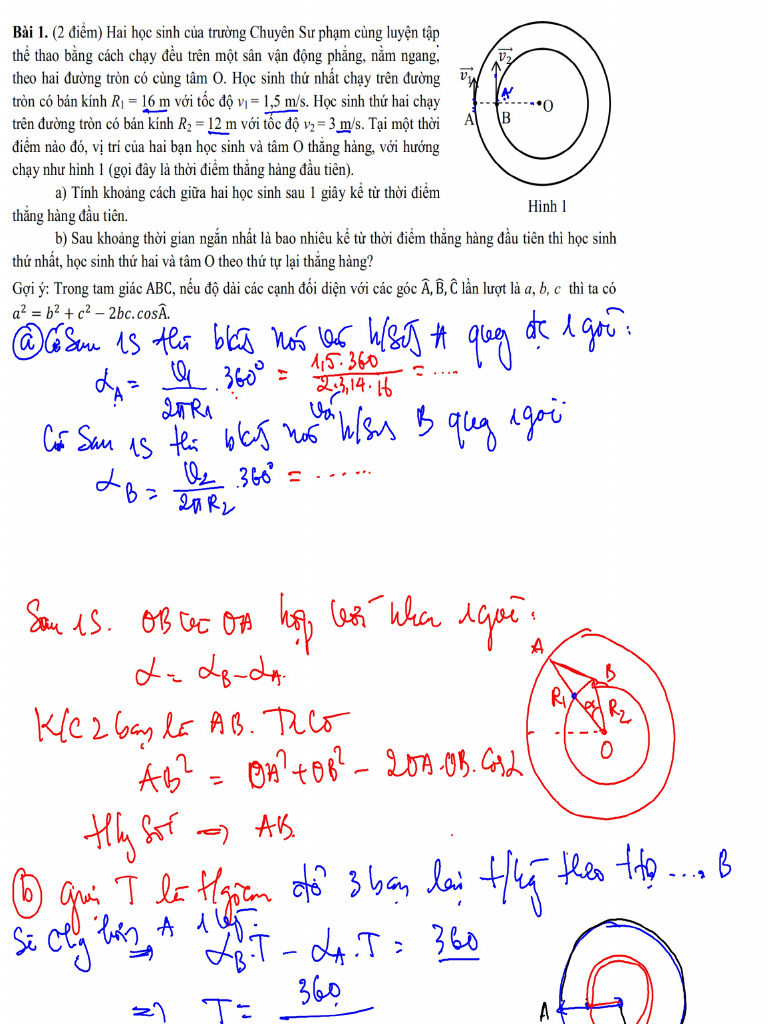 Bài 1. (2 điểm) Hai học sinh của trường Chuyên Sư phạm cùng luyện tập
thể thao bằng cách chạy đều trên một sân vận động phẳng, nằm ngang,
theo hai đường tròn có cùng tâm O. Học sinh thứ nhất chạy trên đường
tròn có bán kính R₁ = 16 m với tốc độ v₁ = 1,5 m/s. Học sinh thứ hai chạy
trên đường tròn có bán kính R₂ = 12 m với tốc độ v₂ = 3 m/s. Tại một thời
điểm nào đó, vị trí của hai bạn học sinh và tâm O thẳng hàng, với hướng
chạy như hình 1 (gọi đây là thời điểm thẳng hàng đầu tiên).
v₁ v₂
A B O
Hình 1
a) Tính khoảng cách giữa hai học sinh sau 1 giây kể từ thời điểm
thẳng hàng đầu tiên.
b) Sau khoảng thời gian ngắn nhất là bao nhiêu kể từ thời điểm thẳng hàng đầu tiên thì học sinh
thứ nhất, học sinh thứ hai và tâm O theo thứ tự lại thẳng hàng?
Gợi ý: Trong tam giác ABC, nếu độ dài các cạnh đối diện với các góc Â, B̂, Ĉ lần lượt là a, b, c thì ta có
a² = b² + c² − 2bc.cosÂ.
a) Cứ sau 1s thì bkính nối với h/sinh A quay đc 1 góc:
α_A = v₁/2πR₁ . 360° = 1,5.360/2.3,14.16 = ....
Cứ sau 1s thì bkính nối với h/sinh B quay 1 góc
α_B = v₂/2πR₂ .360° = ......
Sau 1s. OB và OA hợp với nhau 1 góc:
α = α_B − α_A.
A B R₁ α R₂ O
K/C 2 bạn là AB. Ta có
AB² = OA² + OB² − 2OA.OB.Cosα
Thay số ⇒ AB.
b) gọi T là tgian để 3 bạn lại t/hàng theo thứ tự ..., B
Sẽ chạy hơn A 1 vòng.
⇒ α_B.T − α_A.T = 360
⇒ T = 360
A